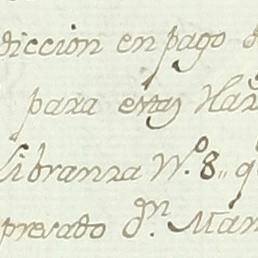 diccion en pago d
para estas Har
Libranza N.º 8,, q
presado d.n Man